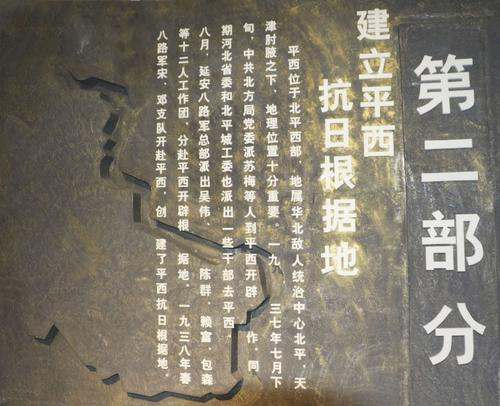 第二部分
建立平西
抗日根据地
平西位于北平西部，地属华北敌人统治中心北平、天
津肘腋之下，地理位置十分重要。一九三七年七月下
旬，中共北方局党委派苏梅等人到平西开辟 作。同
期河北省委和北平城工委也派出一些干部去平西。
八月，延安八路军总部派出吴伟、陈群、赖富、包森
等十二人工作团，分赴平西开辟根据地。一九三八年春
八路军宋、邓支队开赴平西，创建了平西抗日根据地